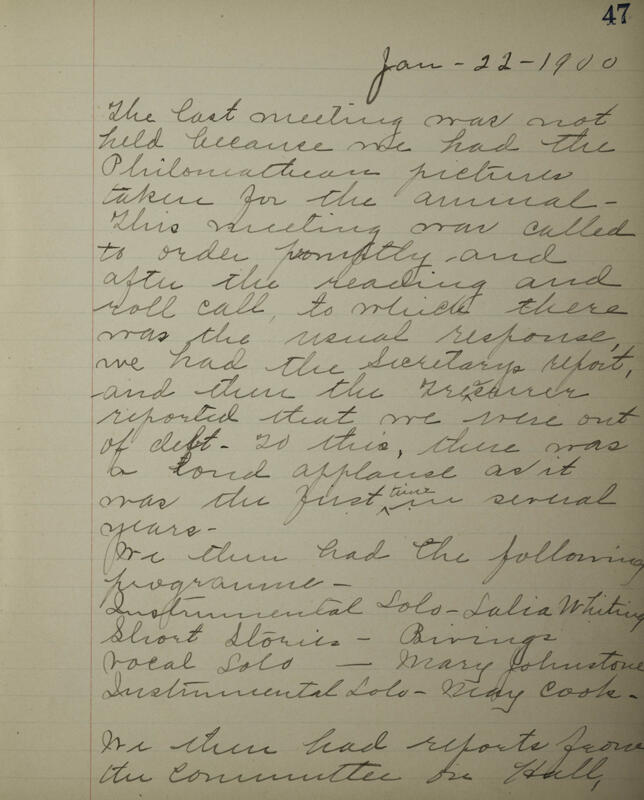 47
Jan - 22 - 1900
The last meeting was not
held because we had the
Philomathean pictures
taken for the annual -
This meeting was called
to order promptly and
after the reading and
roll call, to which there
was the usual response,
we had the Secretarys report,
and then the Treasurer
reported that we were out
of debt - To this, there was
a loud applause as it
was the first time in several
years -
We then had the following
programme -
Instrumental Solo - Lalia Whiting
Short Stories - Bivings
Vocal Solo — Mary Johnstone
Instrumental Solo - May Cook -
We then had reports from
the Committee on Hall,